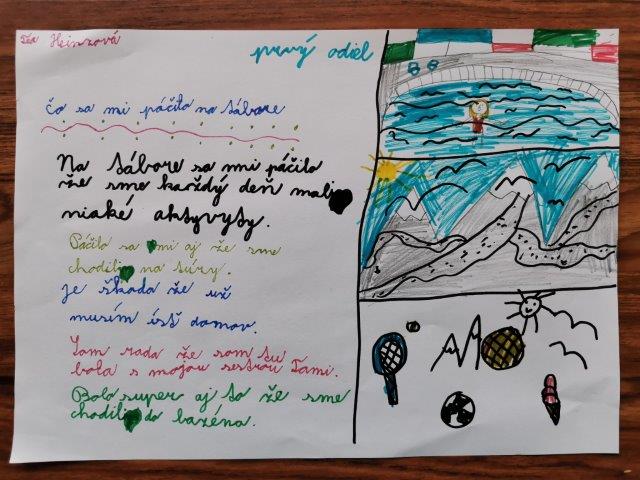 Tea Heinzová
prvý odiel
čo sa mi páčilo na tábore
Na tábore sa mi páčilo
že sme každý deň mali
niaké aktyvyty.
Páčilo sa mi aj že sme
chodili na túry.
je škoda že už
musím ísť domov.
Som rada že som tu
bola s mojou sestrou Tami.
Bolo super aj to že sme
chodili do bazéna.